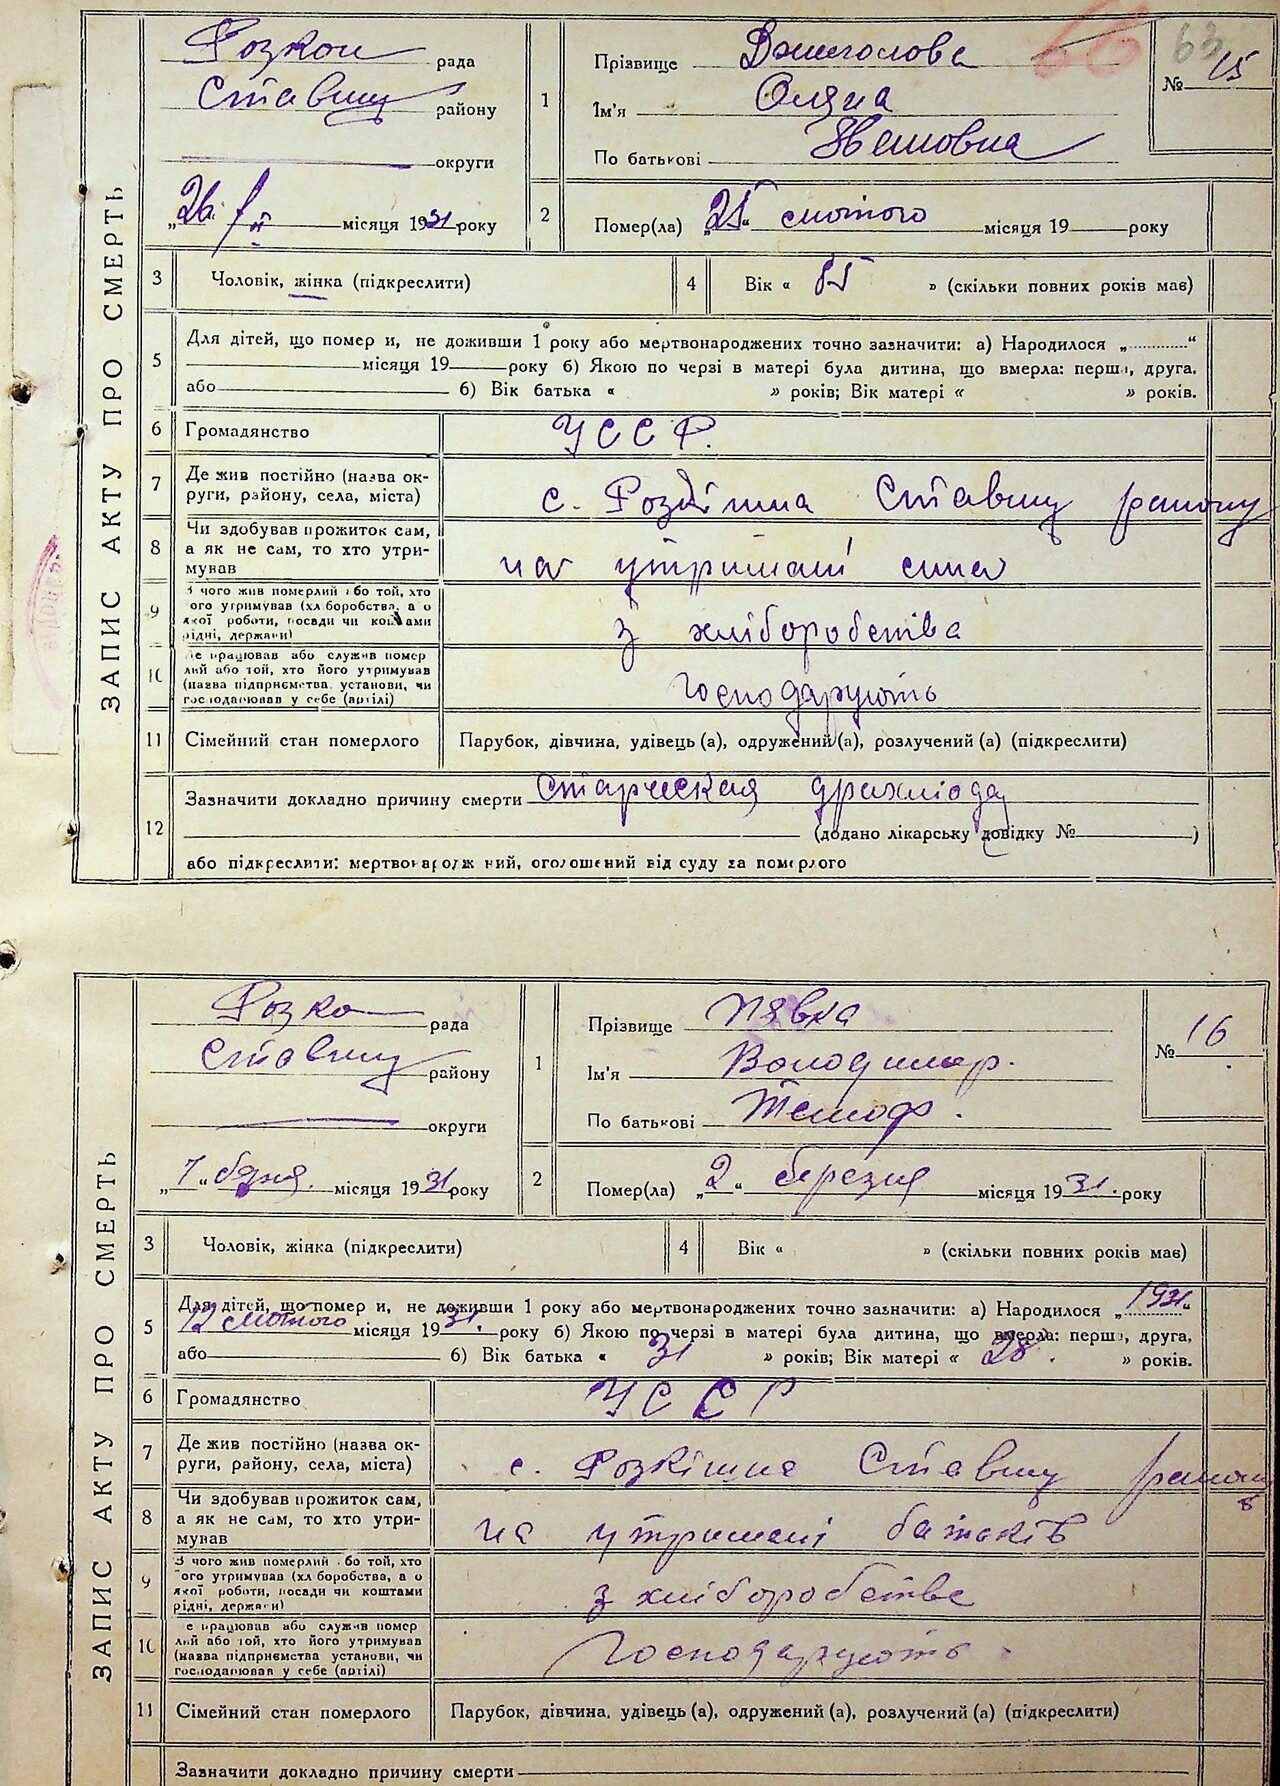 66
63
Розкош рада
Ставищ району
округи
„26 місяця 1931 року
1
Прізвище
Ім'я Оляна
По батькові
№ 15
2
Помер(ла) „25“ лютого місяця 19 року
3
Чоловік, жінка (підкреслити)
4
Вік « 85 » (скільки повних років має)
5
Для дітей, що помер и, не доживши 1 року або мертвонароджених точно зазначити: а) Народилося „ “
місяця 19 року б) Якою по черзі в матері була дитина, що вмерла: перша, друга,
або б) Вік батька « » років; Вік матері « » років.
6
Громадянство УССР.
7
Де жив постійно (назва ок-
руги, району, села, міста)
с. Розкішна Ставищ району
8
Чи здобував прожиток сам,
а як не сам, то хто утри-
мував
на утримані сина
9
З чого жив померлий або той, хто
його утримував (хліборобства, а о
якої роботи, посади чи коштами
рідні, держави)
з хліборобства
10
Де працював або служив помер
лий або той, хто його утримував
(назва підприємства установи, чи
господарював у себе (артілі)
Господарують
11
Сімейний стан померлого
Парубок, дівчина, удівець (а), одружений (а), розлучений (а) (підкреслити)
12
Зазначити докладно причину смерти Старческая
(додано лікарську довідку № )
або підкреслити: мертвонароджений, оголошений від суду за померлого
ЗАПИС АКТУ ПРО СМЕРТЬ
Розко рада
Ставищ району
округи
„7“ б-зня. місяця 1931 року
1
Прізвище Пявка
Ім'я Володимир.
По батькові Тимоф.
№ 16
2
Помер(ла) „2“ березня місяця 1931. року
3
Чоловік, жінка (підкреслити)
4
Вік « » (скільки повних років має)
5
Для дітей, що помер и, не доживши 1 року або мертвонароджених точно зазначити: а) Народилося „1931“
12 лютого місяця 1931. року б) Якою по черзі в матері була дитина, що вмерла: перша, друга,
або б) Вік батька « 31 » років; Вік матері « 28. » років.
6
Громадянство УССР
7
Де жив постійно (назва ок-
руги, району, села, міста)
с. Розкішна Ставищ району
8
Чи здобував прожиток сам,
а як не сам, то хто утри-
мував
на утримані батьків
9
З чого жив померлий або той, хто
його утримував (хліборобства, а о
якої роботи, посади чи коштами
рідні, держави)
з хліборобства
10
Де працював або служив помер
лий або той, хто його утримував
(назва підприємства установи, чи
господарював у себе (артілі)
Господарують
11
Сімейний стан померлого
Парубок, дівчина, удівець (а), одружений (а), розлучений (а) (підкреслити)
Зазначити докладно причину смерти
ЗАПИС АКТУ ПРО СМЕРТЬ